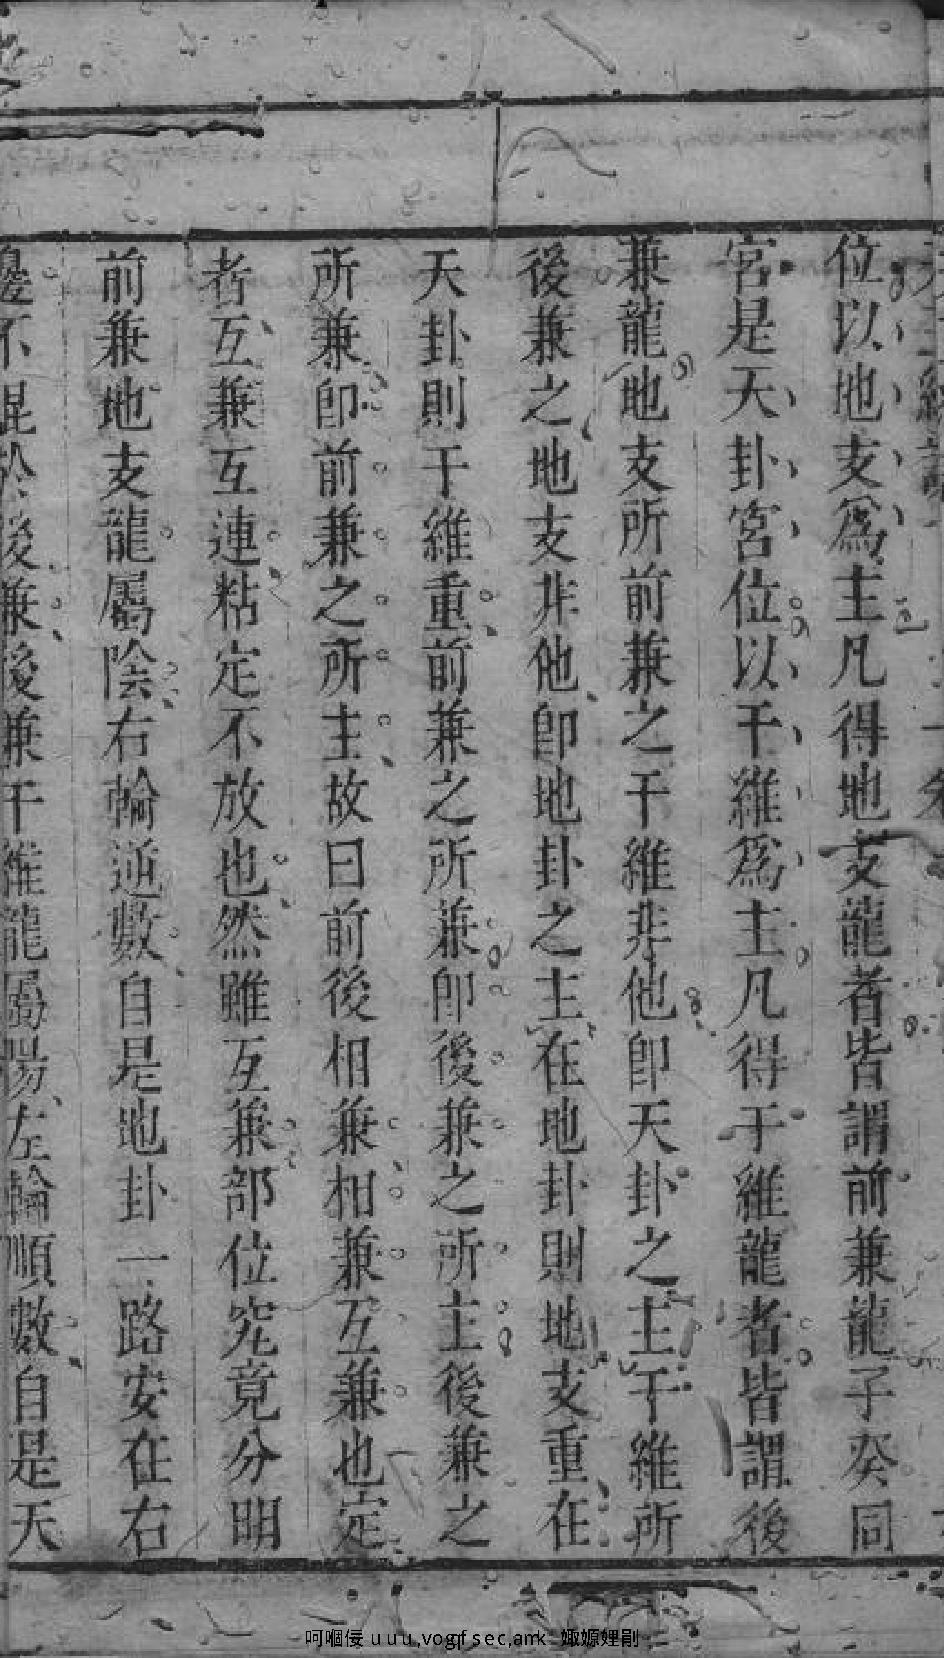 位以地支爲主凡得地支龍者皆謂前兼龍子癸同
宮是天卦宮位以干維爲主凡得干維龍者皆謂後
兼龍地支所前兼之干維非他卽天卦之主干維所
後兼之地支非他卽地卦之主在地卦則地支重在
天卦則干維重前兼之所兼卽後兼之所主後兼之
所兼卽前兼之所主故曰前後相兼相兼互兼也定
者互兼互連粘定不放也然雖互兼部位究竟分明
前兼地支龍屬陰右輪逆數自是地卦一路安在右
邊不混於後兼後兼干維龍屬陽左輪順數自是天
呵嗰偠 u u u,vogf s ec,amk 娵嫄娌剮